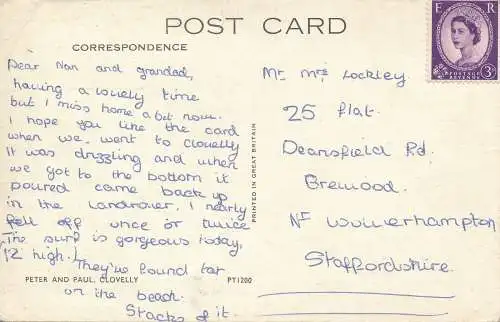 POST CARD
CORRESPONDENCE
Dear Nan and grandad,
having a lovely time
but I miss home a bit now.
I hope you like the card
when we went to clovelly
it was drizzling and when
we got to the bottom it
poured came back up
in the Landrover. I nearly
fell off once or twice
The surf is gorgeous today,
12 high!
They've found tar
on the beach.
Stacks of it.
PETER AND PAUL, CLOVELLY
PT1200
PRINTED IN GREAT BRITAIN
E R
POSTAGE
REVENUE
3D
Mr Mrs Lockley
25 flat
Deansfield Rd.
Brewood
Nr wolverhampton
Staffordshire.